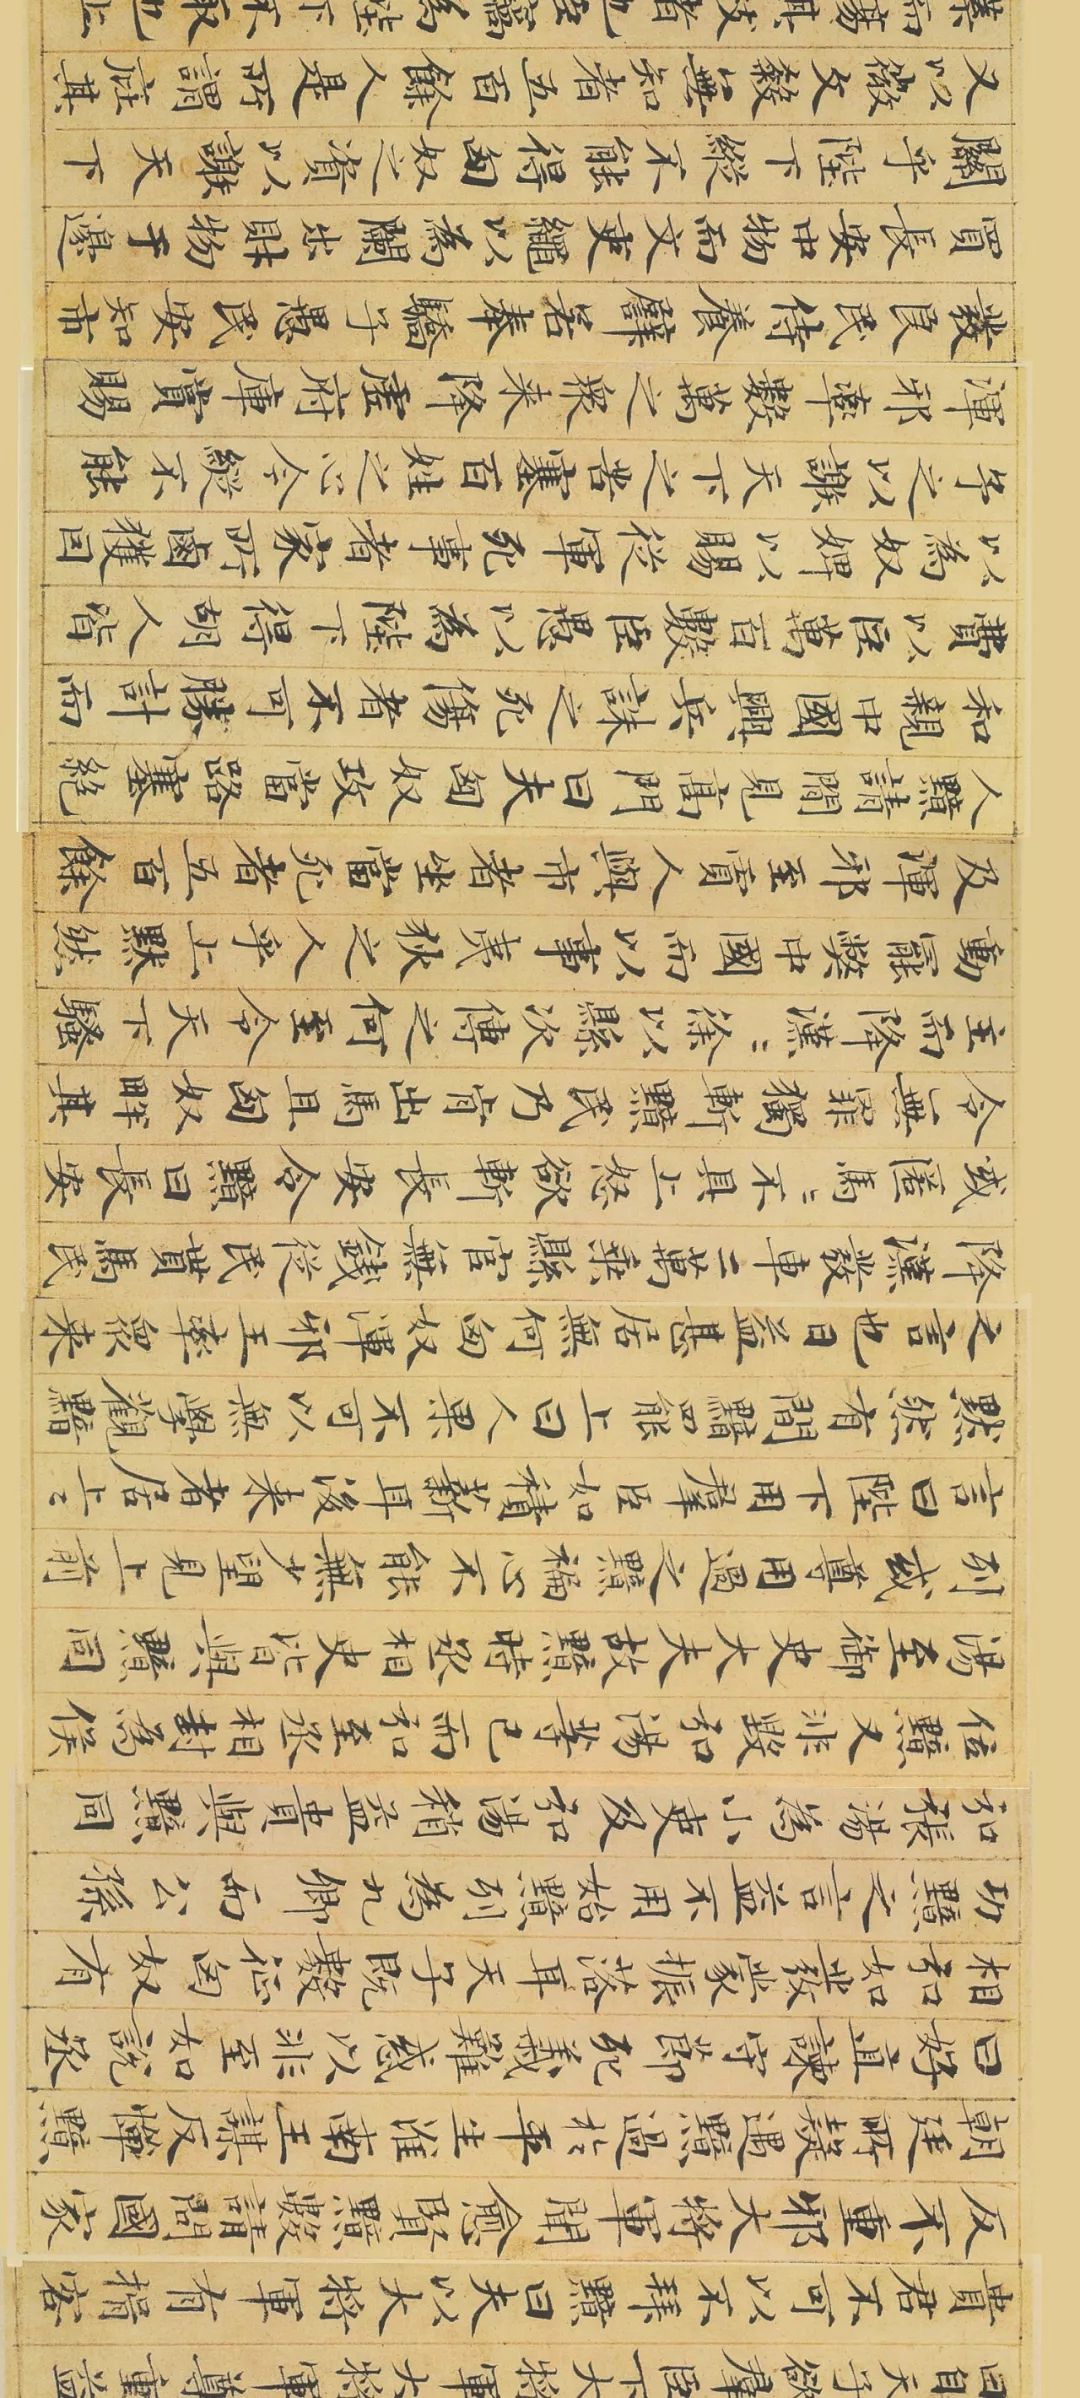 回自天子欲羣臣下大將軍大將軍尊重益
貴君不可以不拜黯曰夫以大將軍有揖客
反不重邪大將軍聞愈賢黯數請問國家
朝廷所疑遇黯過於平生淮南王謀反憚黯
曰好直諫守節死義難惑以非至如說丞
相弘如發蒙振落耳天子既數征匈奴有
功黯之言益不用始黯列為九卿而公孫
弘張湯為小吏及弘湯稍益貴與黯同
位黯又非毀弘湯等已而弘至丞相封為侯
湯至御史大夫故黯時丞相史皆與黯同
列或尊用過之黯褊心不能無少望見上前
言曰陛下用羣臣如積薪耳後来者居上〻
默然有間黯罷上曰人果不可以無學觀黯
之言也日益甚居無何匈奴渾邪王率衆来
降漢發車二萬乘縣官無錢從民貰馬民
或匿馬〻不具上怒欲斬長安令黯曰長安
令無罪獨斬黯民乃肯出馬且匈奴畔其
主而降漢〻徐以縣次傳之何至令天下騷
動罷弊中國而以事夷狄之人乎上默然
及渾邪至賈人與市者坐當死者五百餘
人黯請間見高門曰夫匈奴攻當路塞絕
和親中國興兵誅之死傷者不可勝計而
費以巨萬百數臣愚以為陛下得胡人皆
以為奴婢以賜從軍死事者家所鹵獲因
予之以謝天下之苦塞百姓之心今縱不能
渾邪率數萬之衆来降虛府庫賞賜
發良民侍養譬若奉驕子愚民安知市
買長安中物而文吏繩以為闌出財物于邊
關乎陛下縱不能得匈奴之資以謝天下
又以微文殺無知者五百餘人是所謂庇其
葉而傷其枝者也臣竊為陛下不取也上